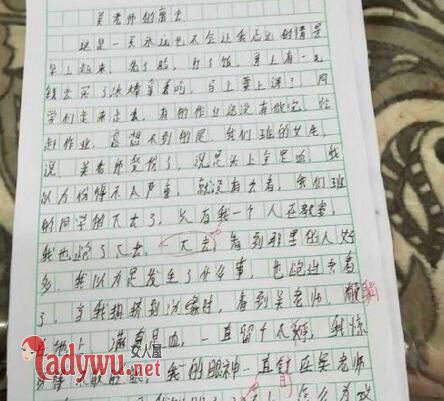 吴老师的离去
这是一天永远也不会让我忘记的情景
早上起来,洗了脸,打了饭,身上有一元
钱去买了冰棒拿着的,马上要上课了,同
学们走来走去,有的作业还没有做完,忙
赶作业,意想不到的是,我们班的女生
说,吴老师受伤了,说是头上全是血,我
以为伤得不太严重,就没有去看,我们班
的同学都下去了,只有我一个人在教室,
我也跑了下去,下去看到那里的人好
多,我以为是发生了什么事,也跑过去看
了,当我拥挤到边缘时,看到吴老师,躺
在地上,满身是血,一直留个不停,我惊
我的眼神一直盯在吴老师
怎么为
ladywu.net
女人屋